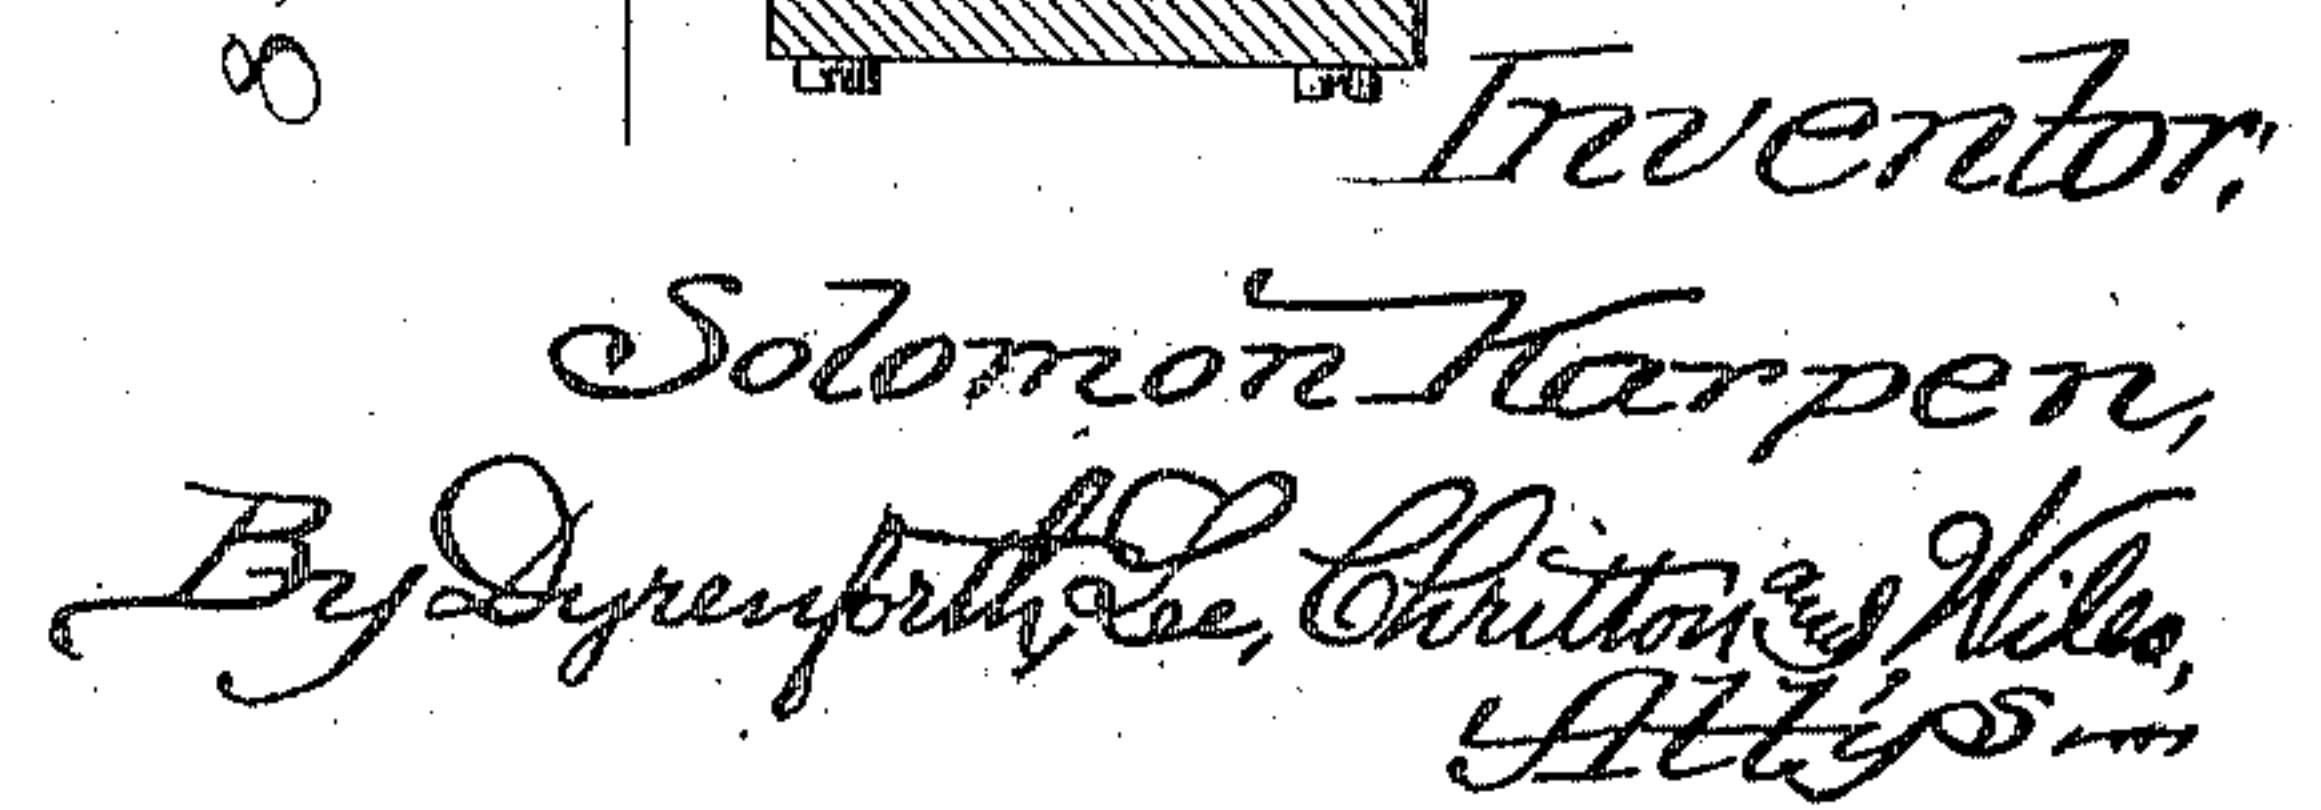 8
Inventor:
Solomon Karpen,
By Dyrenforth, Lee, Chritton and Wiles,
Att'ys